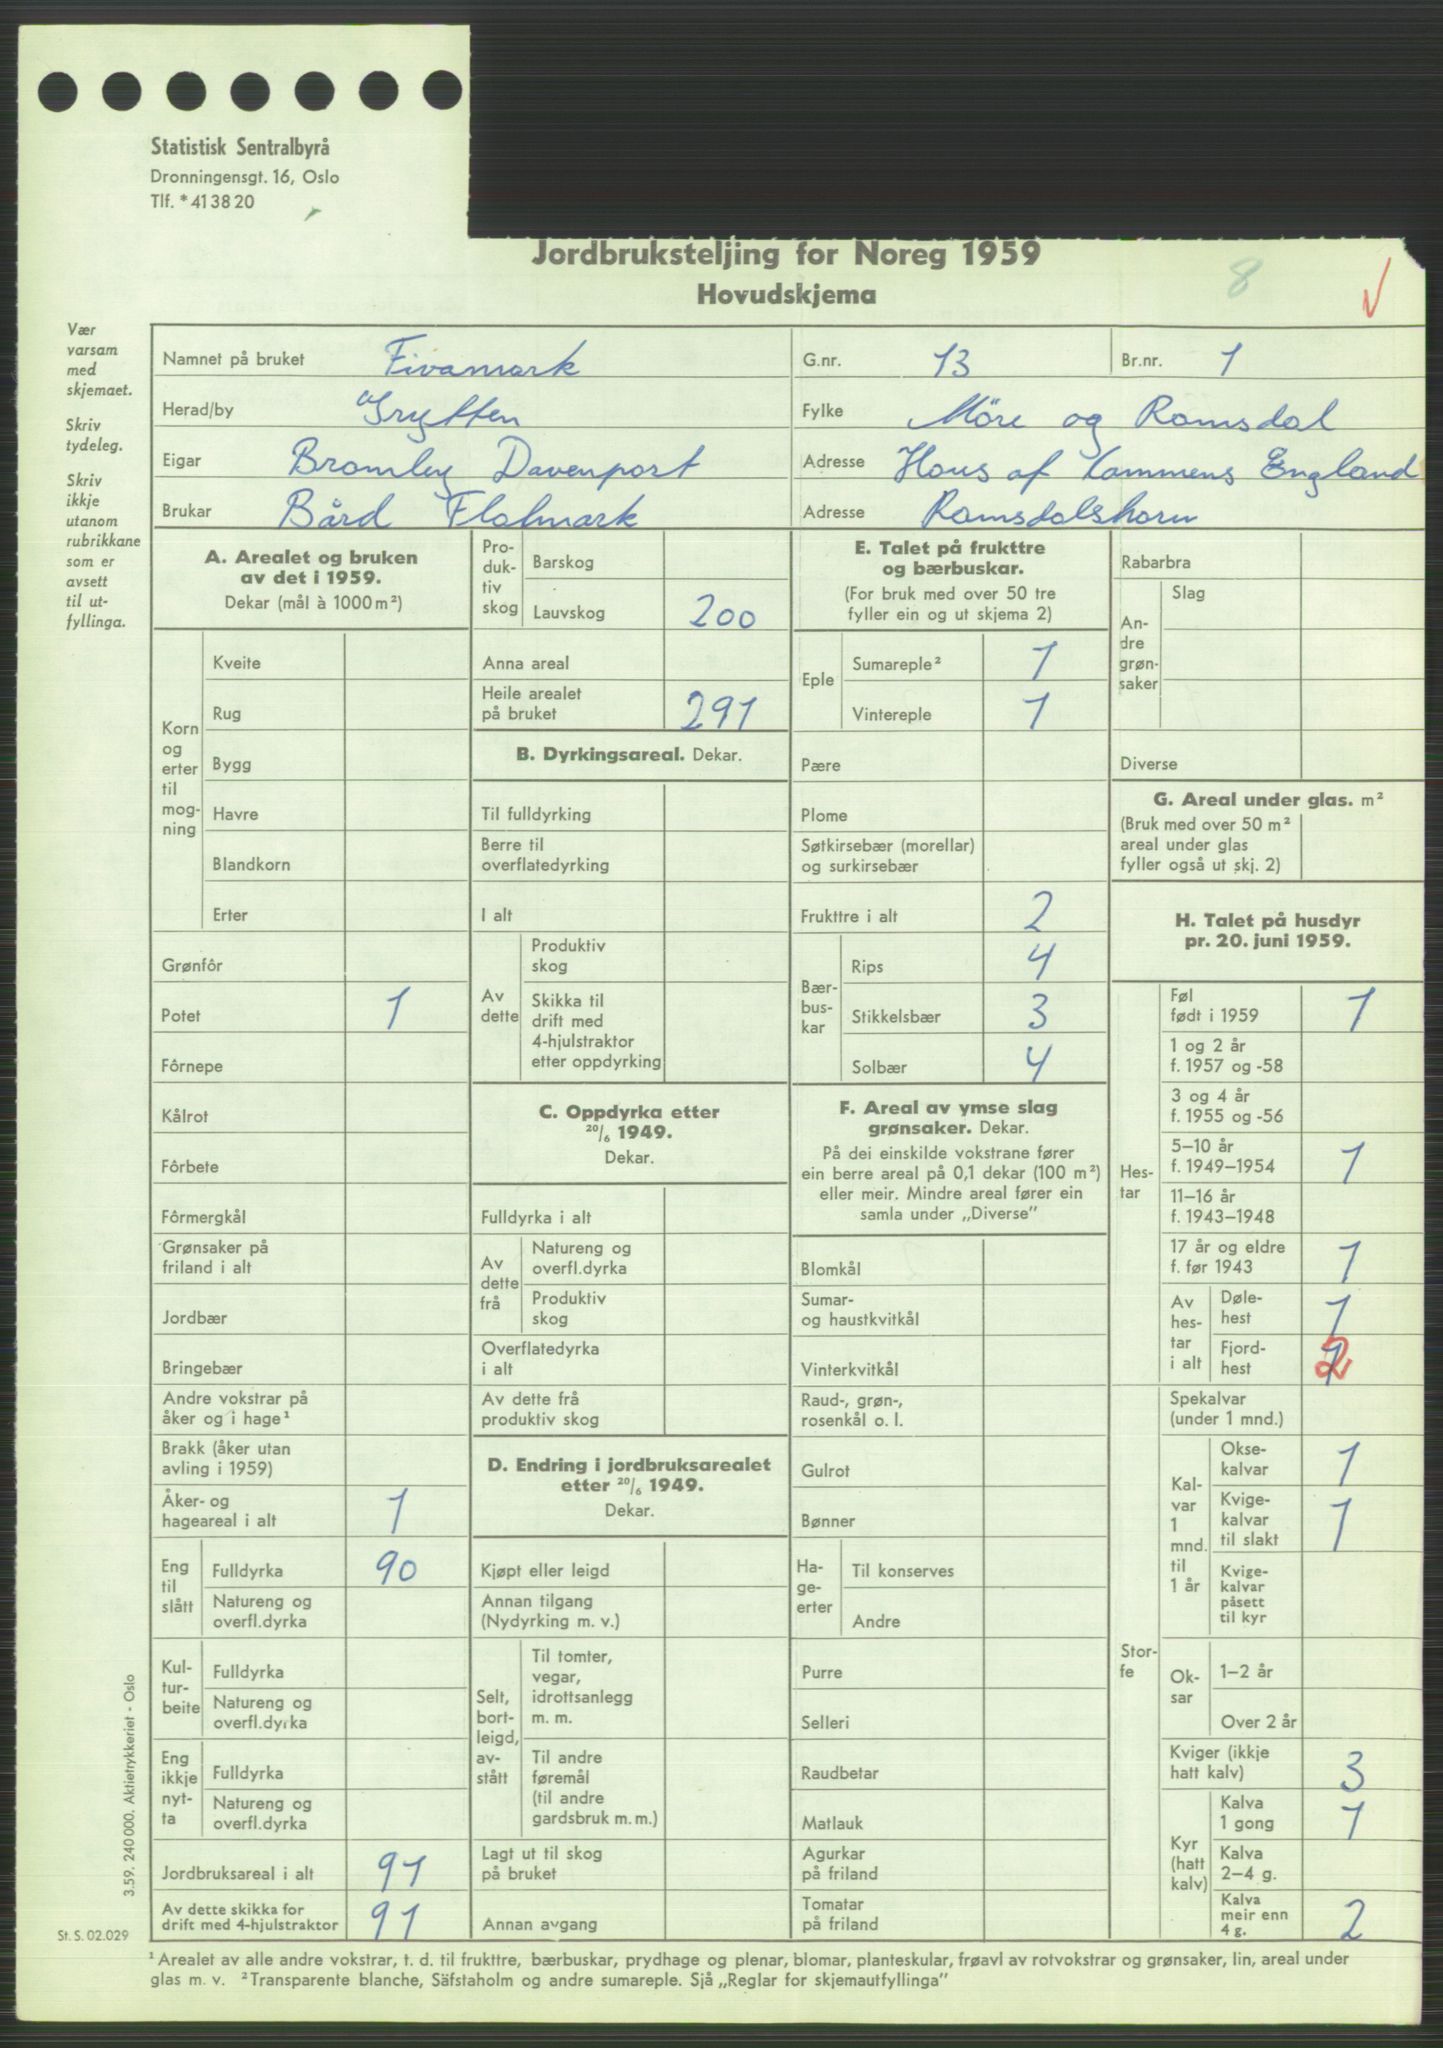 Statistisk Sentralbyrå
Dronningensgt. 16, Oslo
Tlf. * 41 38 20
Jordbruksteljing for Noreg 1959
Hovudskjema
8
Vær
varsam
med
skjemaet.
Skriv
tydeleg.
Skriv
ikkje
utanom
rubrikkane
som er
avsett
til ut-
fyllinga.
Namnet på bruket Fivamark G.nr. 13 Br.nr. 1
Herad/by Grytten Fylke Möre og Romsdal
Eigar Bromley Davenport Adresse Hous af Kammens England
Brukar Bård Flatmark Adresse Romsdalshorn
A. Arealet og bruken
av det i 1959.
Dekar (mål à 1000 m²)
Korn
og
erter
til
mog-
ning
Kveite
Rug
Bygg
Havre
Blandkorn
Erter
Grønfôr
Potet 1
Fôrnepe
Kålrot
Fôrbete
Fôrmergkål
Grønsaker på
friland i alt
Jordbær
Bringebær
Andre vokstrar på
åker og i hage¹
Brakk (åker utan
avling i 1959)
Åker- og
hageareal i alt 1
Eng
til
slått
Fulldyrka 90
Natureng og
overfl.dyrka
Kul-
tur-
beite
Fulldyrka
Natureng og
overfl.dyrka
Eng
ikkje
nyt-
ta
Fulldyrka
Natureng og
overfl.dyrka
Jordbruksareal i alt 91
Av dette skikka for
drift med 4-hjulstraktor 91
Pro-
duk-
tiv
skog
Barskog
Lauvskog 200
Anna areal
Heile arealet
på bruket 291
B. Dyrkingsareal. Dekar.
Til fulldyrking
Berre til
overflatedyrking
I alt
Av
dette
Produktiv
skog
Skikka til
drift med
4-hjulstraktor
etter oppdyrking
C. Oppdyrka etter
20/6 1949.
Dekar.
Fulldyrka i alt
Av
dette
frå
Natureng og
overfl.dyrka
Produktiv
skog
Overflatedyrka
i alt
Av dette frå
produktiv skog
D. Endring i jordbruksarealet
etter 20/6 1949.
Dekar.
Kjøpt eller leigd
Annan tilgang
(Nydyrking m. v.)
Selt,
bort-
leigd,
av-
stått
Til tomter,
vegar,
idrottsanlegg
m. m.
Til andre
føremål
(til andre
gardsbruk m. m.)
Lagt ut til skog
på bruket
Annan avgang
E. Talet på frukttre
og bærbuskar.
(For bruk med over 50 tre
fyller ein og ut skjema 2)
Eple
Sumareple² 1
Vintereple 1
Pære
Plome
Søtkirsebær (morellar)
og surkirsebær
Frukttre i alt 2
Bær-
bus-
kar
Rips 4
Stikkelsbær 3
Solbær 4
F. Areal av ymse slag
grønsaker. Dekar.
På dei einskilde vokstrane fører
ein berre areal på 0,1 dekar (100 m²)
eller meir. Mindre areal fører ein
samla under „Diverse”
Blomkål
Sumar-
og haustkvitkål
Vinterkvitkål
Raud-, grøn-,
rosenkål o. l.
Gulrot
Bønner
Ha-
ge-
erter
Til konserves
Andre
Purre
Selleri
Raudbetar
Matlauk
Agurkar
på friland
Tomatar
på friland
Rabarbra
An-
dre
grøn-
saker
Slag
Diverse
G. Areal under glas. m²
(Bruk med over 50 m²
areal under glas
fyller også ut skj. 2)
H. Talet på husdyr
pr. 20. juni 1959.
Hes-
tar
Føl
født i 1959 1
1 og 2 år
f. 1957 og -58
3 og 4 år
f. 1955 og -56
5–10 år
f. 1949–1954 1
11–16 år
f. 1943–1948
17 år og eldre
f. før 1943 1
Av
hes-
tar
i alt
Døle-
hest 1
Fjord-
hest 2
Stor-
fe
Spekalvar
(under 1 mnd.)
Kal-
var
1
mnd.
til
1 år
Okse-
kalvar 1
Kvige-
kalvar
til slakt 1
Kvige-
kalvar
påsett
til kyr
Ok-
sar
1–2 år
Over 2 år
Kviger (ikkje
hatt kalv) 3
Kyr
(hatt
kalv)
Kalva
1 gong 1
Kalva
2–4 g.
Kalva
meir enn
4 g. 2
3.59. 240 000. Aktietrykkeriet - Oslo
St. S. 02.029
¹ Arealet av alle andre vokstrar, t. d. til frukttre, bærbuskar, prydhage og plenar, blomar, planteskular, frøavl av rotvokstrar og grønsaker, lin, areal under
glas m. v. ² Transparente blanche, Säfstaholm og andre sumareple. Sjå „Reglar for skjemautfyllinga”